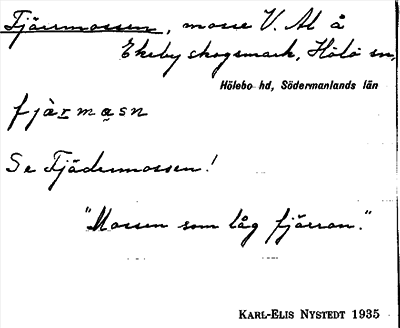 Fjärmossen, mosse V. Al å
Ekeby skogsmark, Hölö sn,
Hölebo hd, Södermanlands län
fjàrmasn
Se Fjädermossen!
"Mossen som låg fjärran."
KARL-ELIS NYSTEDT 1935